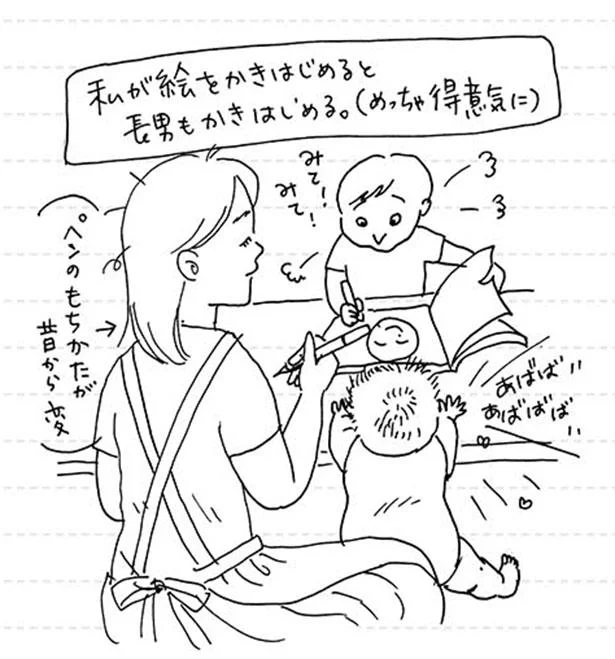 私が絵をかきはじめると
長男もかきはじめる。(めっちゃ得意気に)
みて!
みて!
(ペンのもちかたが
昔から変)
あばば"
あばばば"